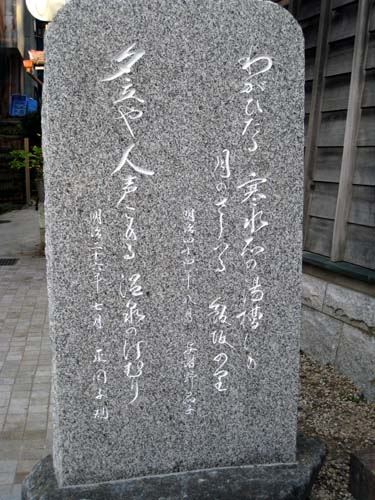 わがひたる 寒水石の湯槽にも
月のさしいる 飯坂の里
明治四十四年 八月 与謝野晶子
夕立や 人声こもる 温泉のけむり
明治二十六年 七月 正岡子規